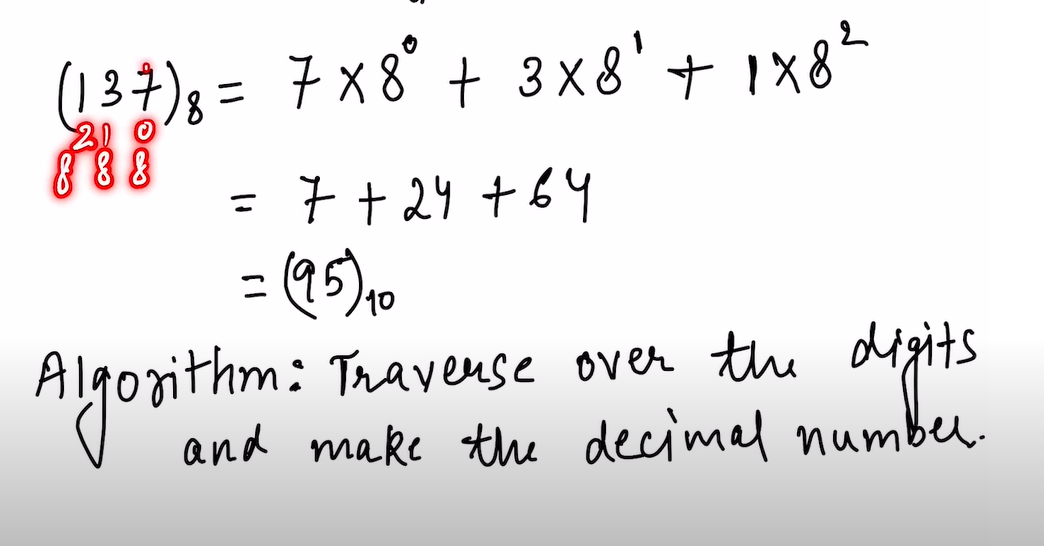 (137)₈ = 7 × 8⁰ + 3 × 8¹ + 1 × 8²
2 1 0
8 8 8
= 7 + 24 + 64
= (95)₁₀
Algorithm: Traverse over the digits
and make the decimal number.